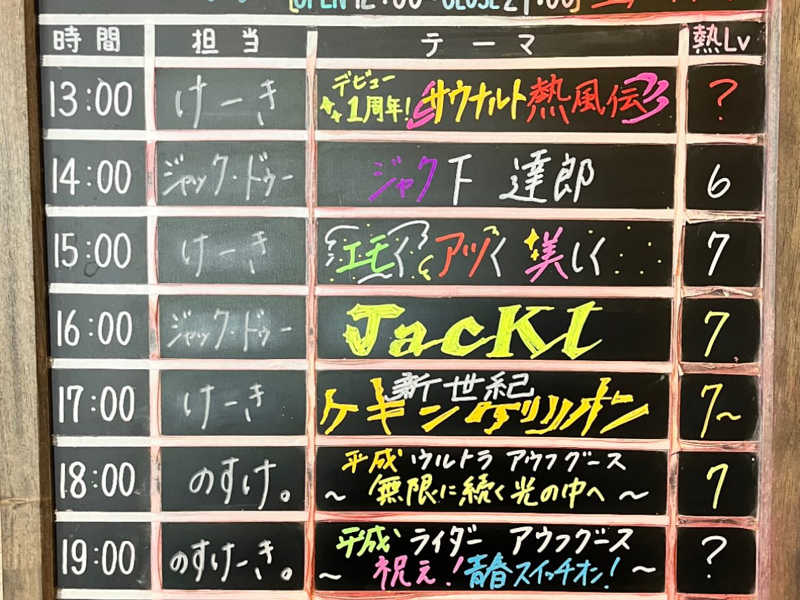 OPEN 12:00~CLOSE 21:00
時間 担当 テーマ 熱Lv
13:00 けーき デビュー1周年! サウナルト熱風伝 ?
14:00 ジャック・ドゥー ジャク下 達郎 6
15:00 けーき エモく アツく 美しく 7
16:00 ジャック・ドゥー JacKI 7
17:00 けーき 新世紀 7~
ケキンゲリオン
18:00 のすけ。 平成 ウルトラ アウフグース 7
~無限に続く光の中へ~
19:00 のすけーき。 平成 ライダー アウフグース ?
~祝え!青春スイッチオン!~